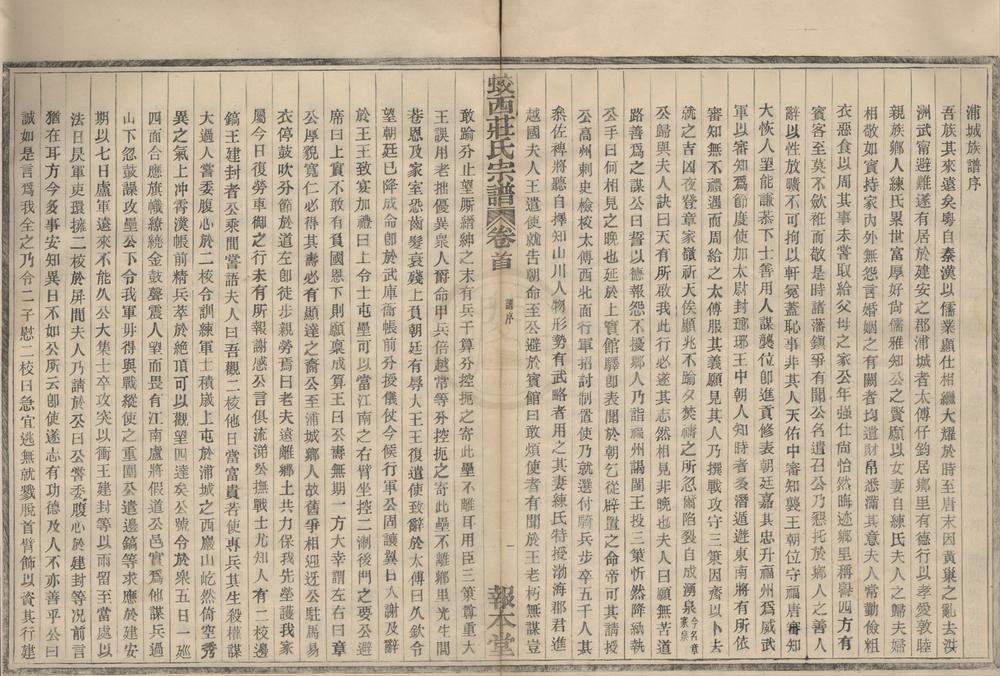 浦城族譜序
吾族其來遠矣粤自秦漢以儒業顯仕相繼大耀於時至唐末因黃巢之亂去洪
洲武甯避難遂有居於建安之郡浦城者太傅仔鈞居鄉里有德行以孝愛敦睦
親族鄉人練氏累世富厚好尚儒雅知公之賢願以女妻自練氏夫人之歸夫婦
相敬如賓持家內外無怨言婚姻之有闕者均遺財帛悉滿其意夫人常勤儉粗
衣惡食以周其事未嘗取給父母之家公年强仕尚怡然晦迹鄉里稱譽四方有
賓客至莫不歛袵而敬是時諸藩鎮爭有聞公名遺召公乃懇托於鄉人之善人
辭以性放曠不可拘以軒冕蓋恥事非其人天佑中審知襲王朝位守福唐審知
大恢人望能謙恭下士善用人謀襲位卽進貢修表朝廷嘉其忠升福州爲威武
軍以審知爲節度使加太尉封瑯琊王中朝人知時者多潛遁遊東南將有所依
審知無不禮遇而周給之太傅服其義願見其人乃撰戰攻守三策因齋以卜去
就之吉凶夜登章家嶺祈天俟顯兆不踰夕焚禱之所忽爾陷裂自成湧泉今名章家泉
公歸與夫人訣曰天有所啟我此行必遂其志然相見非晚也夫人曰願無苦道
路善爲之謀公曰誓以德報怨不予擾鄉人乃詣福州謁閩王投三策忻然降納執
公手曰何相見之晚也延於上賓館驛卽表聞於朝乞從辟置之命帝可其請授
公高州刺史檢校太傅西北面行軍招討制置使乃就選付騎兵步卒五千人其
叅佐裨將聽自擇知山川人物形勢有武略者用之其妻練氏特授渤海郡君進
越國夫人王遣使就告朝命至公避於賓館曰敢煩使者有聞於王老朽無謀豈
蛟西莊氏宗譜 卷首
譜序
一
報本堂
敢踰分止望厠縉紳之末有兵千算分控扼之寄此壘不離耳用臣三策尊重大
王誤用老拙優異衆人爵命甲兵倍越常等分控扼之寄此壘不離鄉里光生閭
巷恩及家室恐齒髮衰殘上負朝廷有辱大王王復遣使致辭於太傅曰久欽令
望朝廷已降成命卽於武庫衙帳前分擾儀仗今候行軍公固讓異日入謝及辭
於王王致宴加禮曰上令士屯壘可以當江南之右臂坐控二涮後門之要公避
席曰上實不敢有負國恩下則願稟成算王曰公壽無期一方大幸謂左右曰章
公厚貌寬仁必得其壽必有顯達之裔公至浦城鄉人故舊爭相迎迓公駐馬易
衣停鼓吹分節於道左卽徒步親勞焉曰老夫遠離鄉土共力保我先塋護我家
屬今日復勞車御之行未有所報謝感公言俱流涕公撫戰士尤知人有二校邊
鎬王建封者公乘閒嘗語夫人曰吾觀二校他日當富貴者使專兵其生殺權謀
大過人嘗委腹心於二校令訓練軍士積歲上屯於浦城之西巖山屹然倚空秀
異之氣上冲霄漢帳前精兵萃於絶頂可以觀望四達矣公號令於衆五日一廵
四面合應旗幟繚繞金鼓聲震人望而畏有江南盧將假道公邑實爲他謀兵過
山下忽鼓譟攻壘公下令我軍毋得與戰縱使之重圍公遣邊鎬等求應於建安
期以七日盧軍遠來不能久公大集士卒攻突以衝王建封等以雨留至當處以
法日昃軍吏環擁二校於屏間夫人乃請於公曰公嘗委腹心於建封等况前言
猶在耳方今多事安知異日不如公所云卽使遂志有功德及人不亦善平公曰
誠如是言爲我全之乃令二子慰二校曰急宜逃無就戮脱首臂飾以資其行建